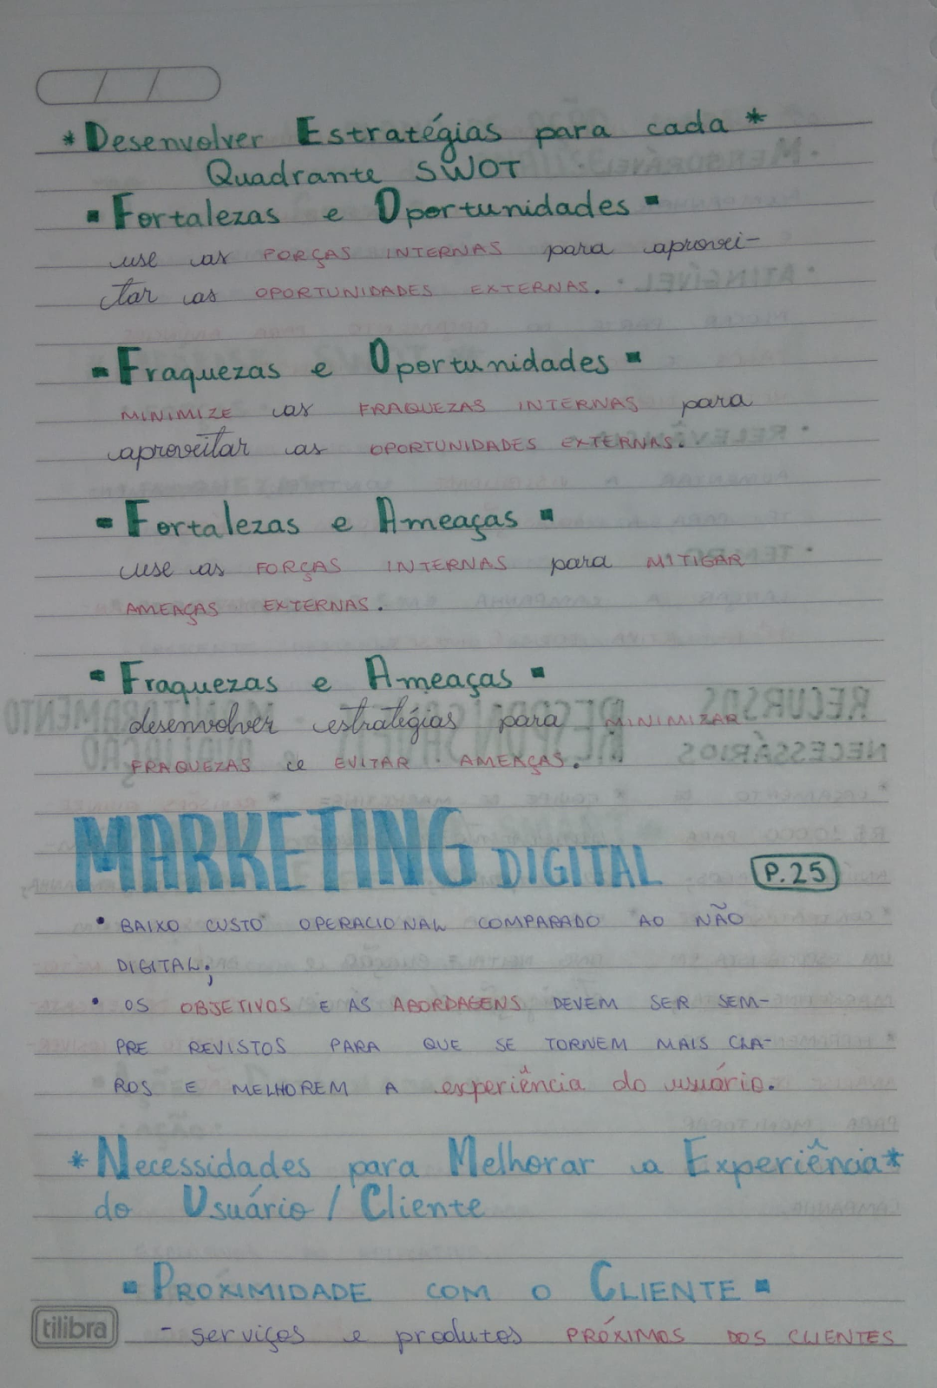 * Desenvolver Estratégias para cada *
Quadrante SWOT
- Fortalezas e Oportunidades -
use as FORÇAS INTERNAS para aprovei-
tar as OPORTUNIDADES EXTERNAS.
- Fraquezas e Oportunidades -
MINIMIZE as FRAQUEZAS INTERNAS para
aproveitar as OPORTUNIDADES EXTERNAS.
- Fortalezas e Ameaças -
use as FORÇAS INTERNAS para MITIGAR
AMEAÇAS EXTERNAS.
- Fraquezas e Ameaças -
desenvolver estratégias para MINIMIZAR
FRAQUEZAS e EVITAR AMEAÇAS.
MARKETING DIGITAL P.25
• BAIXO CUSTO OPERACIONAL COMPARADO AO NÃO
DIGITAL;
• OS OBJETIVOS E AS ABORDAGENS DEVEM SER SEM-
PRE REVISTOS PARA QUE SE TORNEM MAIS CLA-
ROS E MELHOREM A experiência do usuário.
* Necessidades para Melhorar a Experiência *
do Usuário / Cliente
- PROXIMIDADE COM O CLIENTE -
- serviços e produtos PRÓXIMOS DOS CLIENTES
tilibra